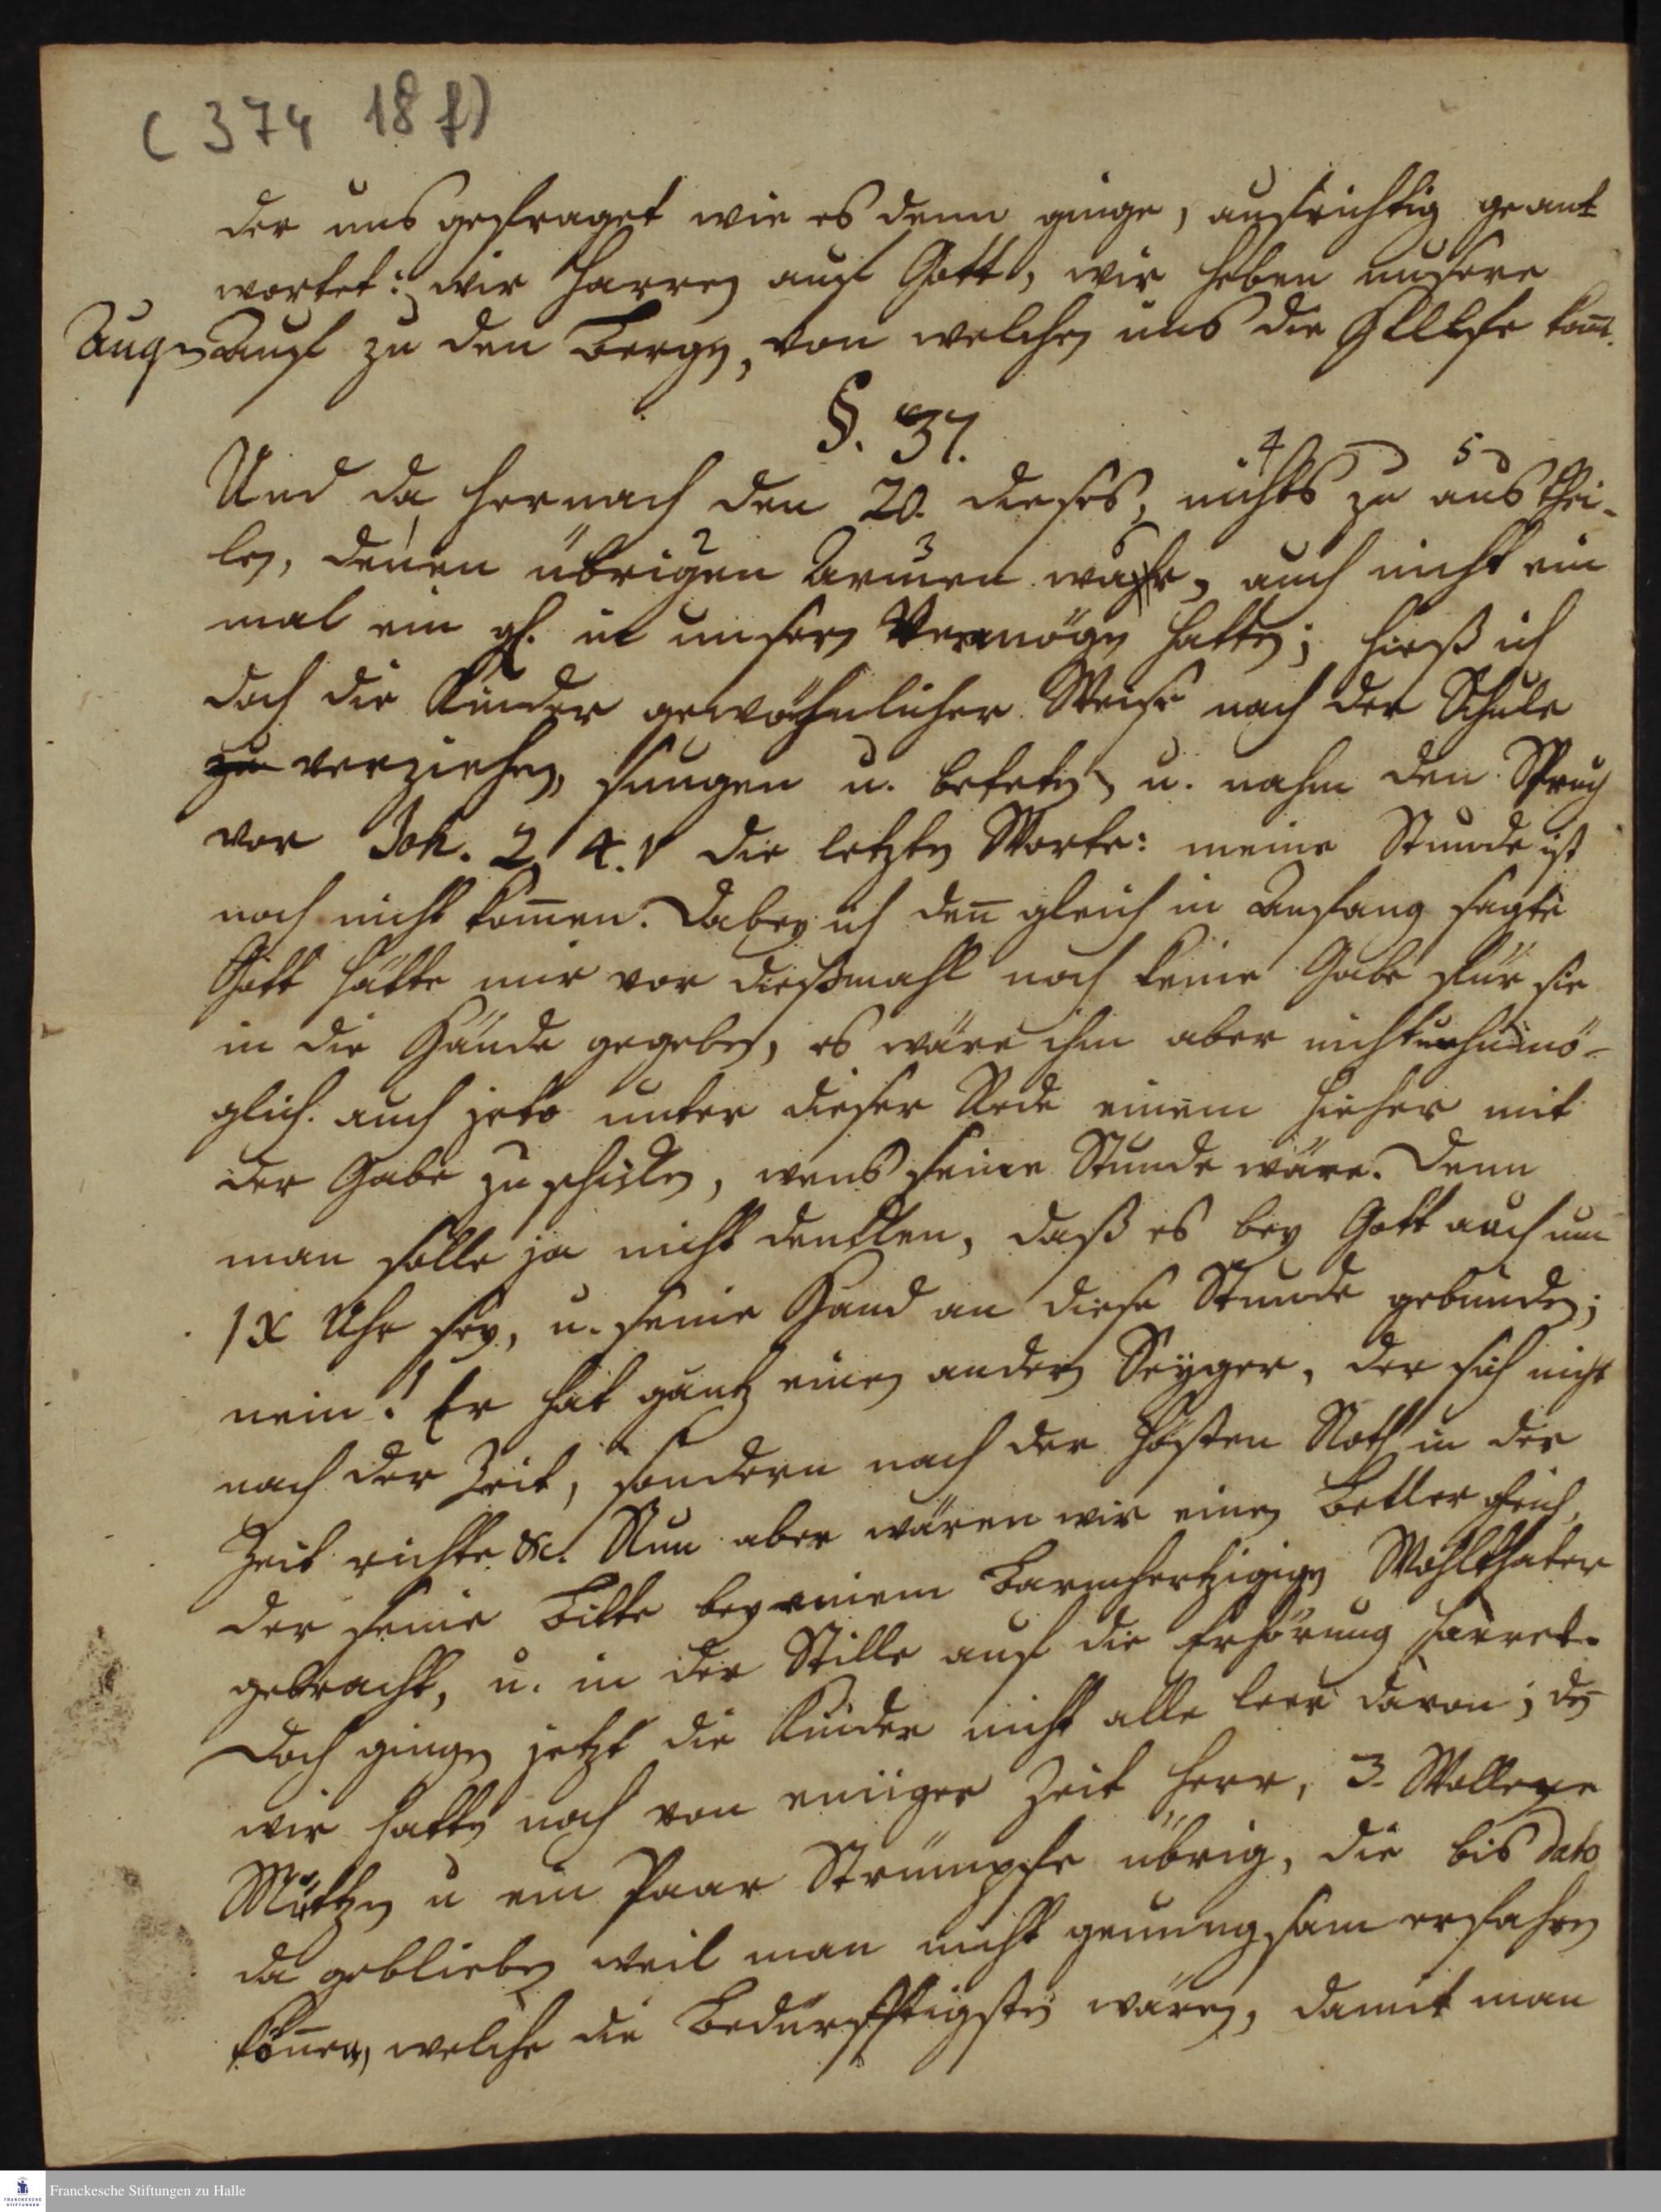 (374 18 f)
der uns gefraget wie es denn ginge, aufrichtig geant-
wortet: wir harren auf Gott, wir heben unsere
Augen auf zu den Bergen, von welchen uns die Hülffe kom̅t.
§. 37.
Und da hernach den 20. dieses, nichts 4 zu austhei- 5
len, 1 denen übrigen 2 Armen 3 wahr, auch nicht ein
mal ein gl. in unsern Vermögen hatten; hieß ich
doch die Kinder gewöhnlicher Weise nach der Schule
zu verziehen, sungen u. beteten, u. nahm den Spruch
vor Joh. 2, 4. die letzten Worte: meine Stunde ist
noch nicht kom̅en. Dabey ich den̅ gleich in Anfang sagte
Gott hätte mir vor dießmahl noch keine Gabe für sie
in die Hände gegeben, es wäre ihm aber nicht unmö-
glich. auch jeto unter dieser Rede einem hieher mit
der Gabe zu schicken, wens seine Stunde wäre. Denn
man solle ja nicht dencken, daß es bey Gott auch um
1X Uhr sey, u. seine Hand an diese Stunde gebunden;
nein! Er hat gantz einen andern Seyger, der sich nicht
nach der Zeit, sondern nach der Hösten Noth in der
Zeit richte &c. Nun aber wären wir einen Bettler gleich,
der seine Bitte bey einem Barmhertzigigen Wohlthater
gebracht, u. in der Stille auf die Erhörung harret.
Doch gingen jetzt die Kinder nicht alle leer davon; den̅
wir hatten noch von einiger Zeit herr, 3. Wollene
Mützen u ein Paar Strümpfe übrig, die bis dato
da geblieben weil man nicht genungsam erfahren
kön̅en, welche die Bedürfftigsten wären, damit man
Franckesche Stiftungen zu Halle
FRANCKESCHE STIFTUNGEN